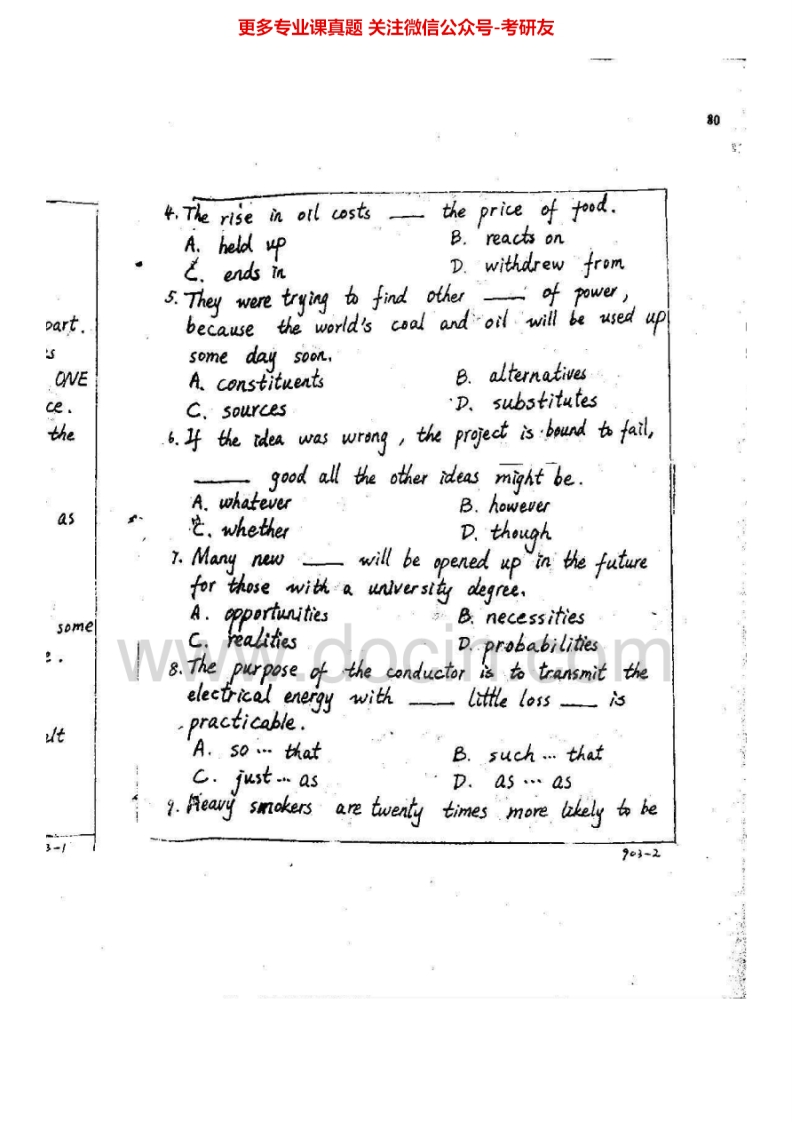 更多专业课真题 关注微信公众号-考研友
80
part.
ONE
ce.
the
as
some
e.
ult
3-1
4. The rise in oil costs ___ the price of food.
A. held up B. reacts on
C. ends in D. withdrew from
5. They were trying to find other ___ of power,
because the world's coal and oil will be used up
some day soon.
A. constituents B. alternatives
C. sources D. substitutes
6. If the idea was wrong, the project is bound to fail,
___ good all the other ideas might be.
A. whatever B. however
C. whether D. though
7. Many new ___ will be opened up in the future
for those with a university degree.
A. opportunities B. necessities
C. realities D. probabilities
www.docin.com
8. The purpose of the conductor is to transmit the
electrical energy with ___ little loss ___ is
practicable.
A. so … that B. such … that
C. just … as D. as … as
9. Heavy smokers are twenty times more likely to be
903-2